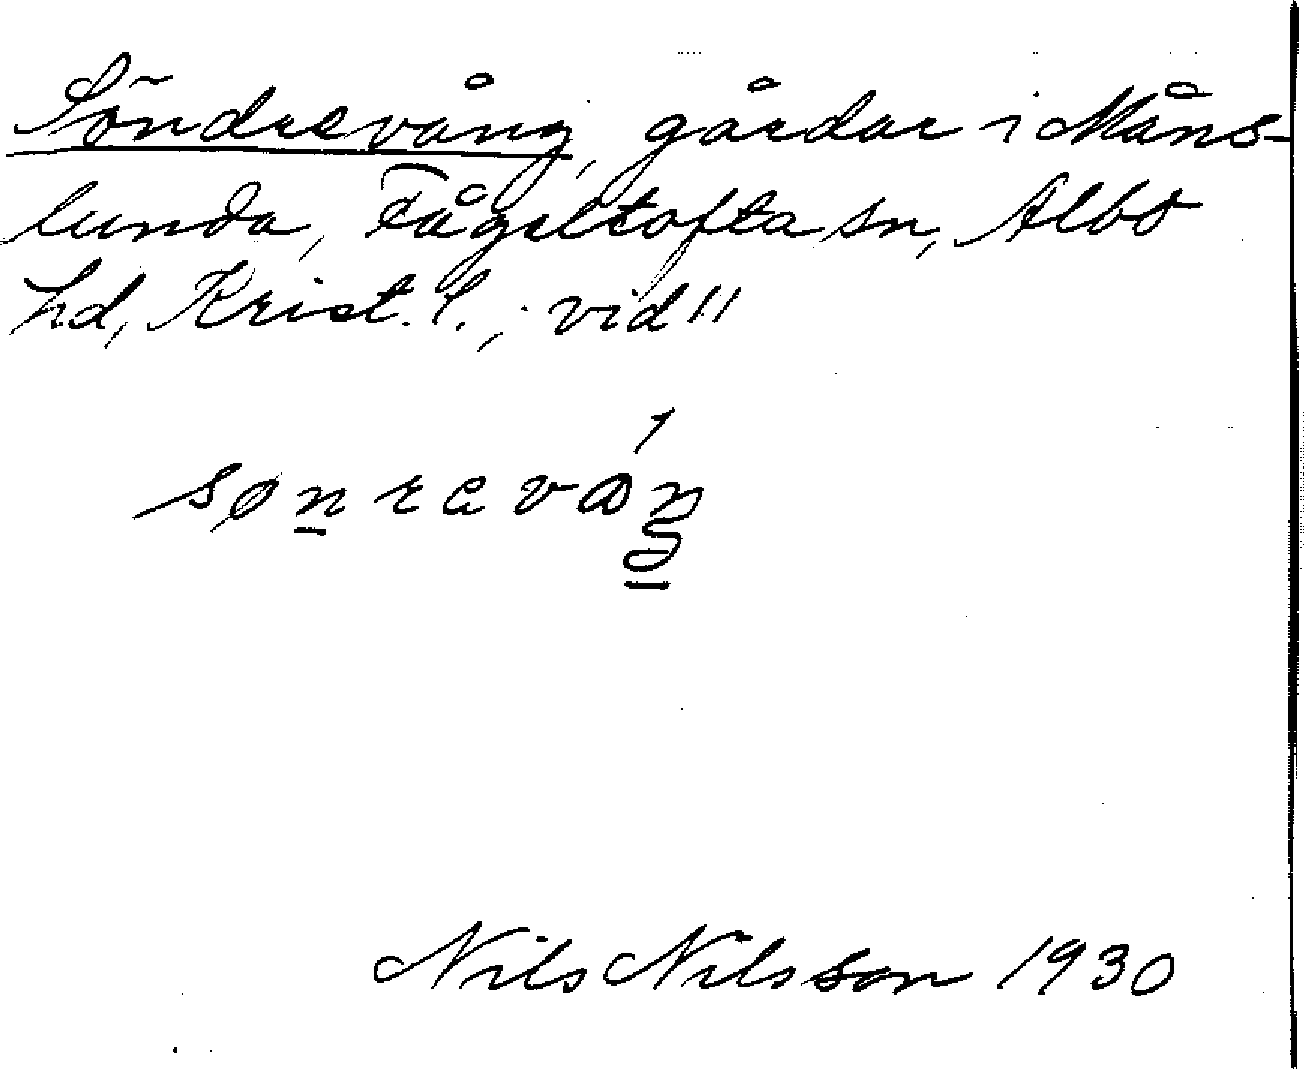 Söndrevång, gårdar i Måns-
lunda, Fågeltofta sn, Albo
hd, Krist. l.; vid "
sønrevåŋ
Nils Nilsson 1930